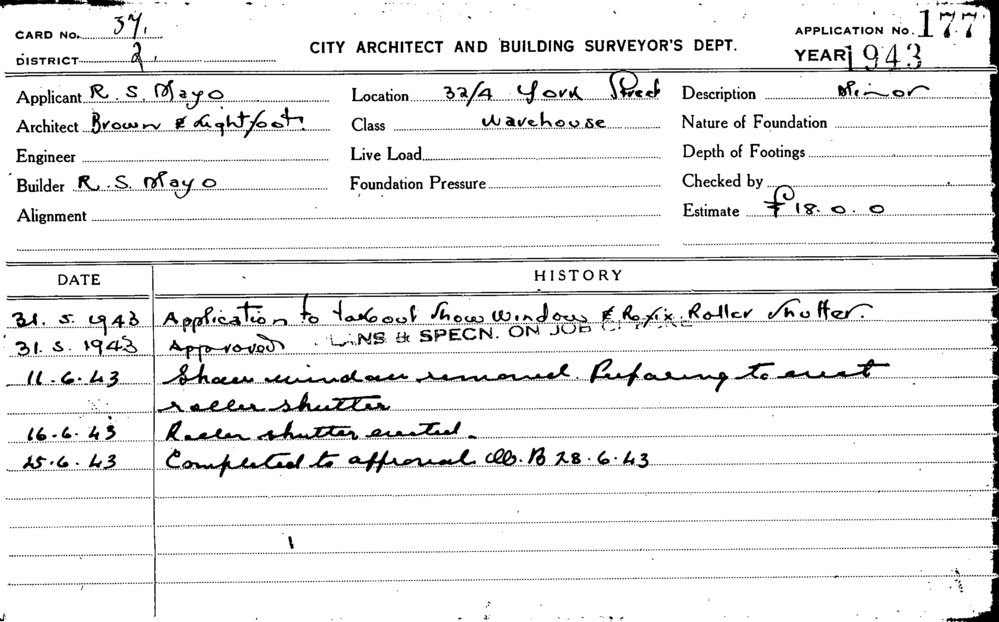 CARD No. 37.
DISTRICT 2.
CITY ARCHITECT AND BUILDING SURVEYOR'S DEPT.
APPLICATION No. 177
YEAR 1943
Applicant R. S. Mayo
Architect Brown & Lightfoot.
Engineer
Builder R. S. Mayo
Alignment
Location 32/4 York Street
Class Warehouse
Live Load
Foundation Pressure
Description Minor
Nature of Foundation
Depth of Footings
Checked by
Estimate £18. 0. 0
DATE HISTORY
31. 5. 1943 Application to take out Show window & fix Roller Shutter.
31. 5. 1943 Approved PLANS & SPECN. ON JOB
11. 6. 43 Show window removed. Preparing to erect
roller shutter
16. 6. 43 Roller shutter erected.
25. 6. 43 Completed to approval 28. 6. 43